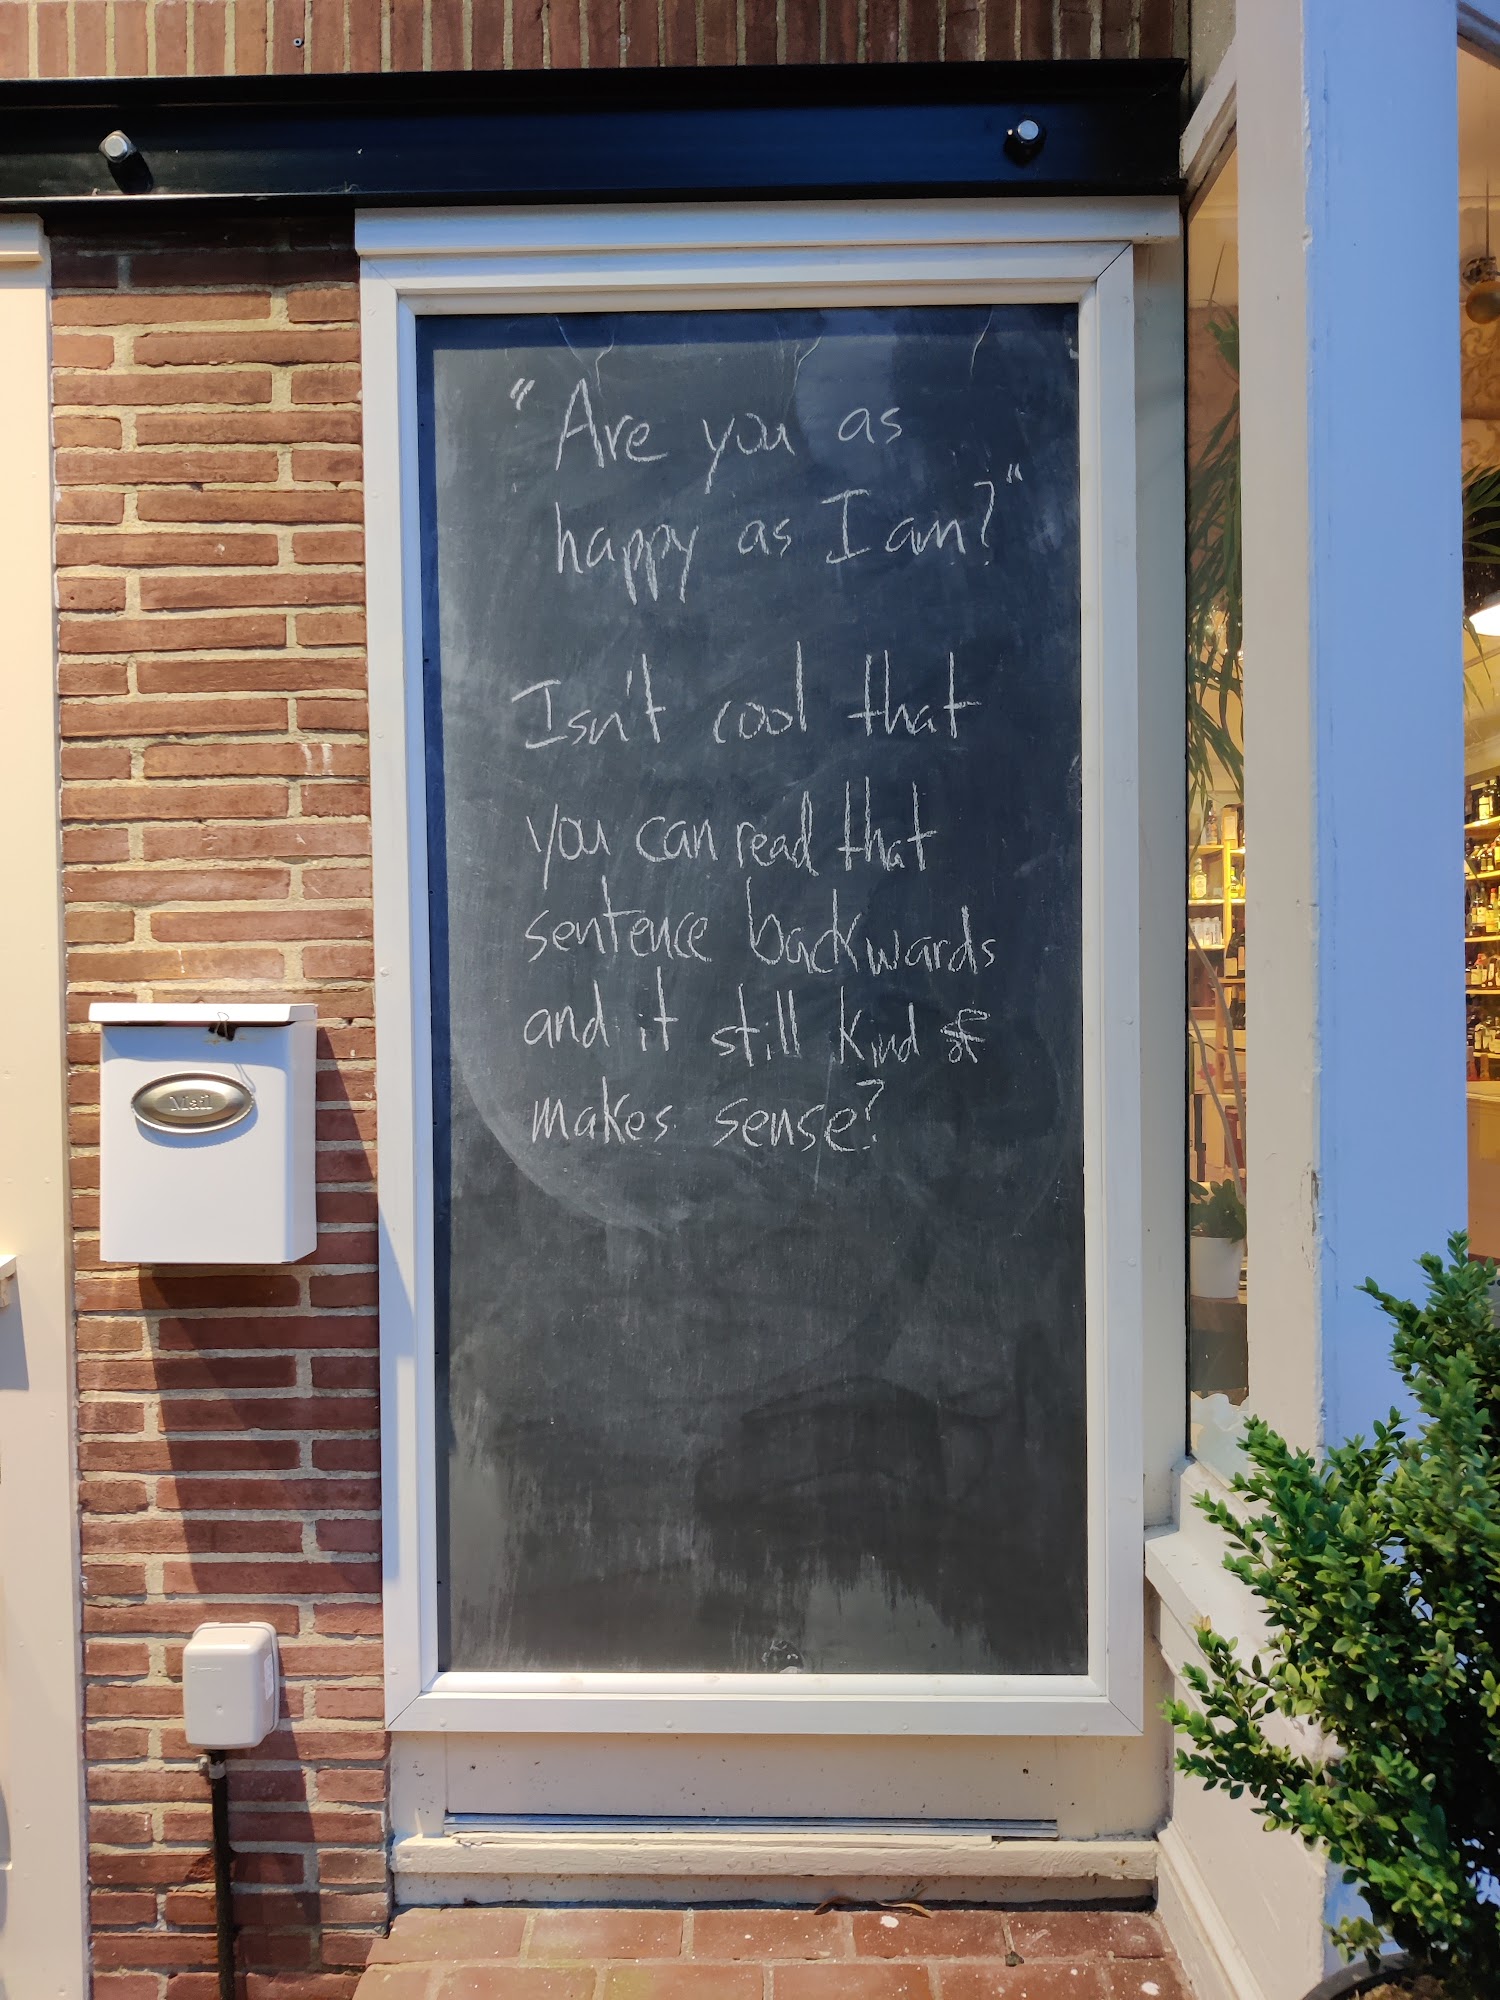 "Are you as
happy as I am?"
Isn't cool that
you can read that
sentence backwards
and it still kind of
makes sense?
Mail